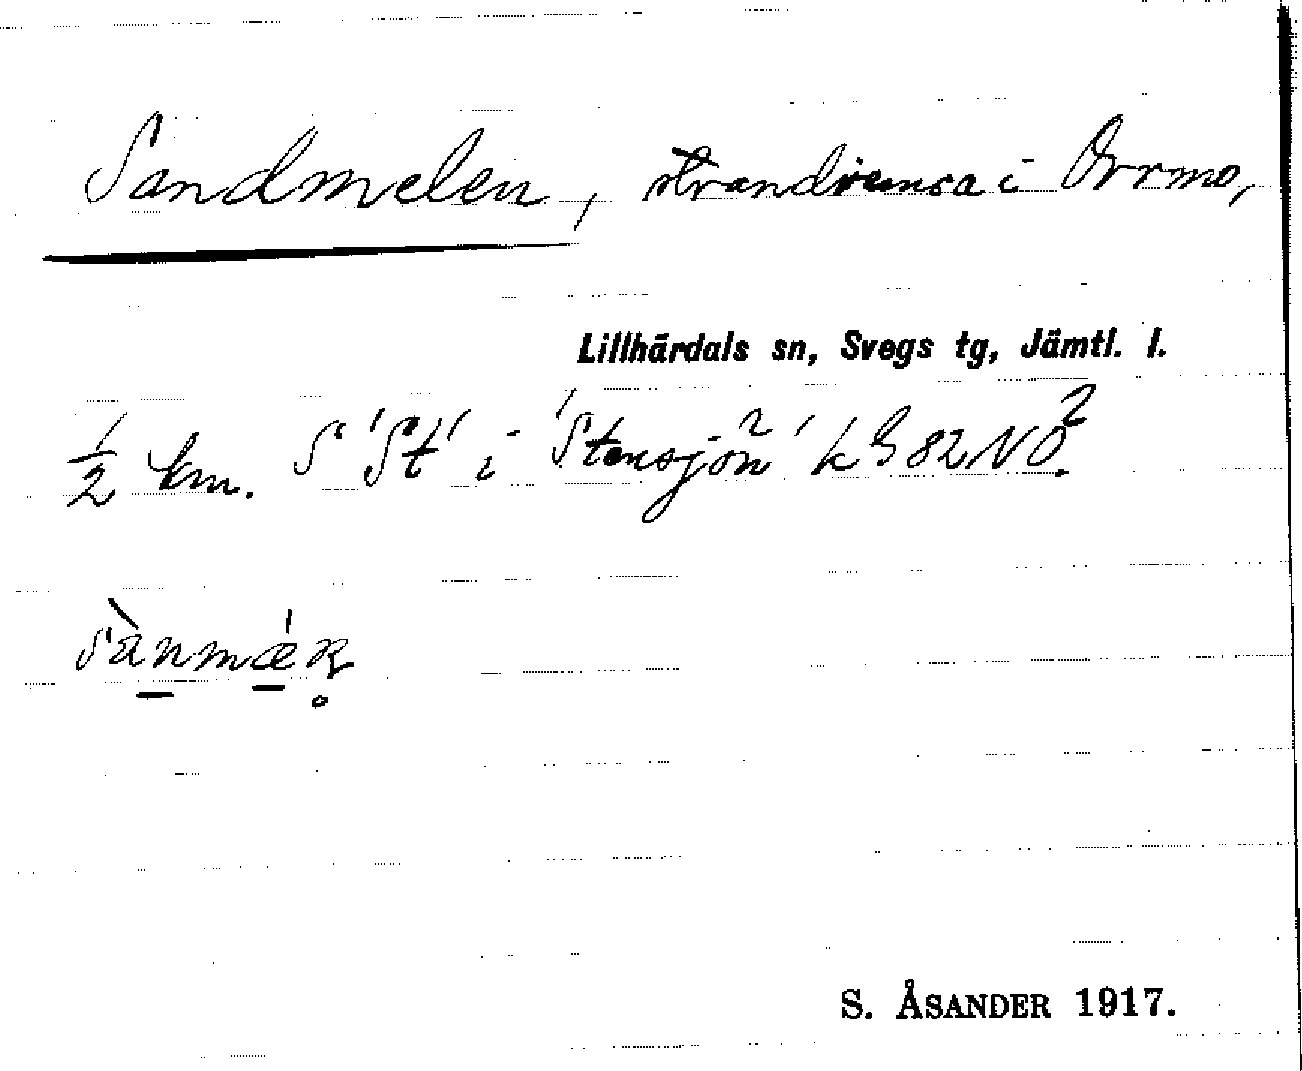 Sandmelen, strandremsa i Orrmo,
Lillhärdals sn, Svegs tg, Jämtl. l.
½ km. S 'St' i 'Stensjön' k G 82 NO².
sànmæ̀n̥
S. ÅSANDER 1917.